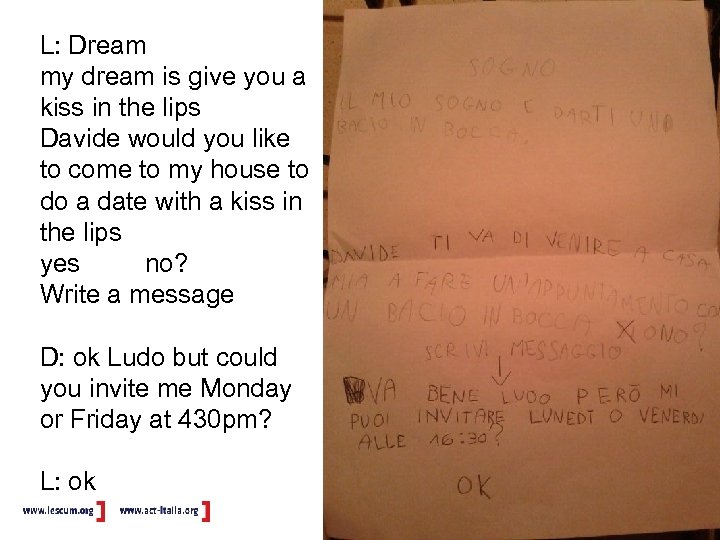 L: Dream
my dream is give you a
kiss in the lips
Davide would you like
to come to my house to
do a date with a kiss in
the lips
yes no?
Write a message
D: ok Ludo but could
you invite me Monday
or Friday at 430pm?
L: ok
www.lescum.org ] www.act-italia.org ]
SOGNO
IL MIO SOGNO E DARTI UNO
BACIO IN BOCCA.
DAVIDE TI VA DI VENIRE A CASA
MIA A FARE UN'APPUNTAMENTO CON
UN BACIO IN BOCCA X O NO?
SCRIVI MESSAGGIO
VA BENE LUDO PERÒ MI
PUOI INVITARE LUNEDÌ O VENERDI
ALLE 16:30?
OK